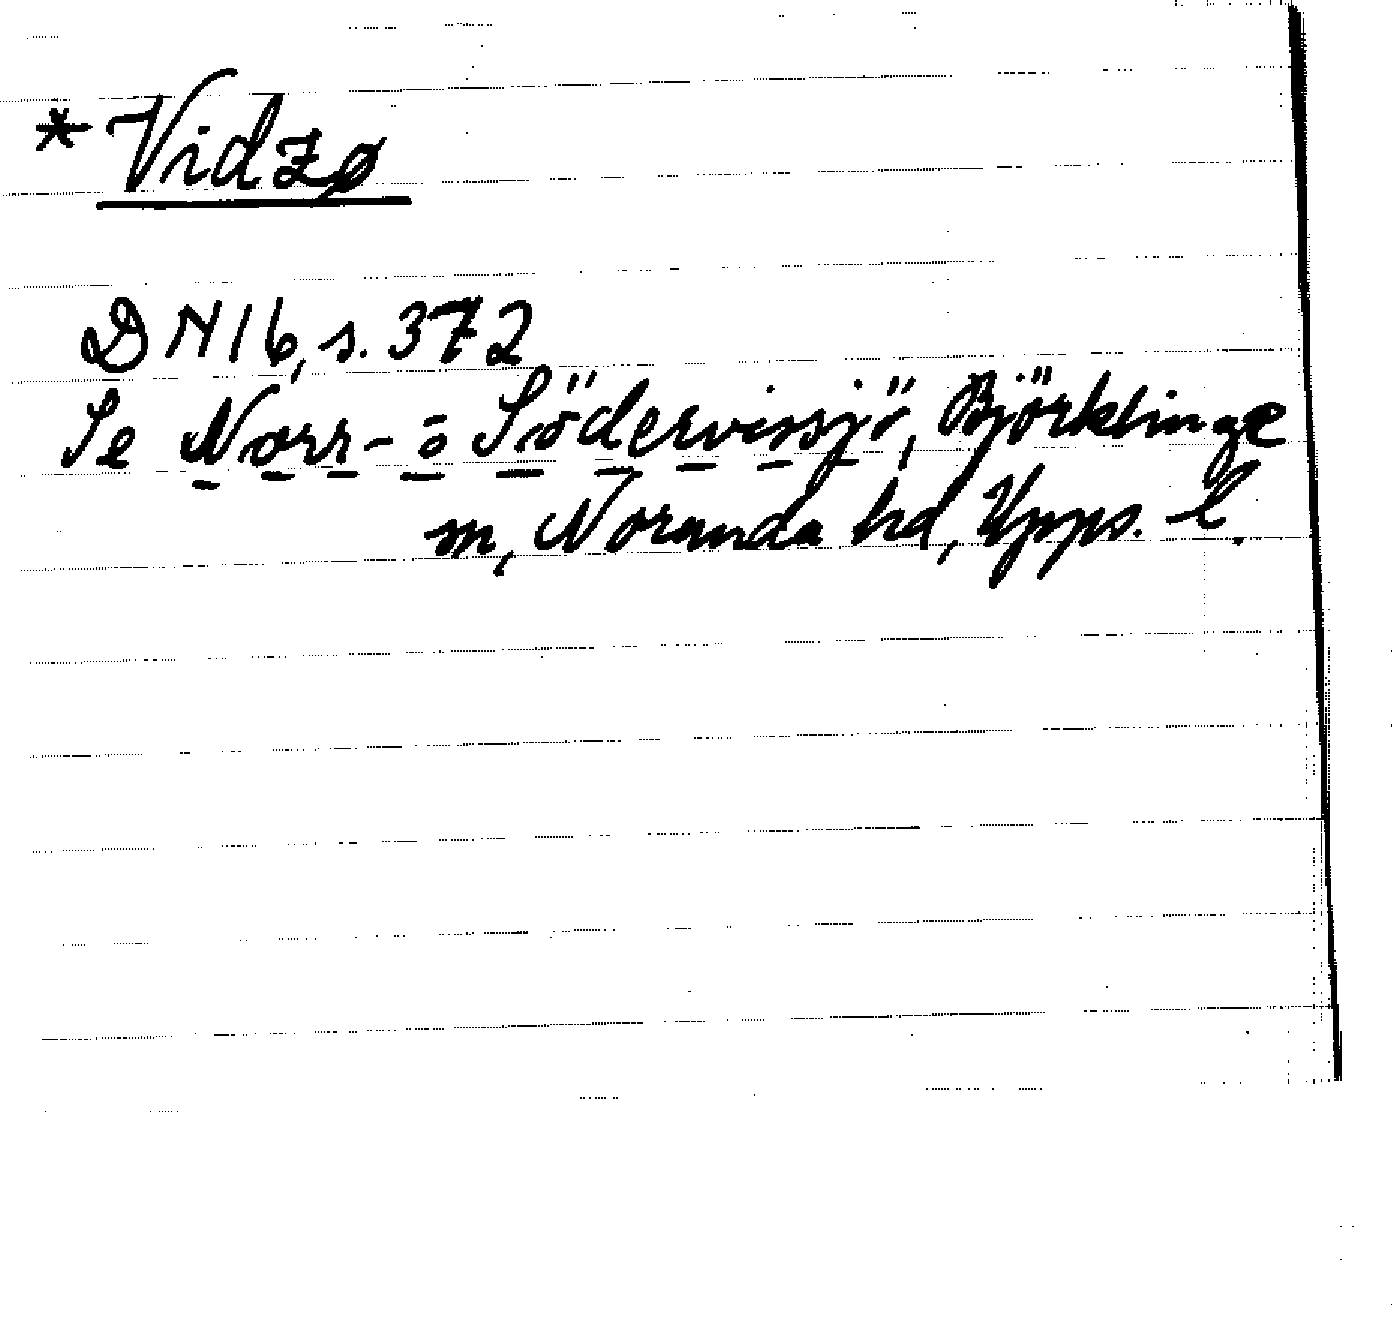 *Vidzø
DN16, s. 372
Se Norr- o Södervissjö, Björklinge
sn, Norunda hd, Upps. l.